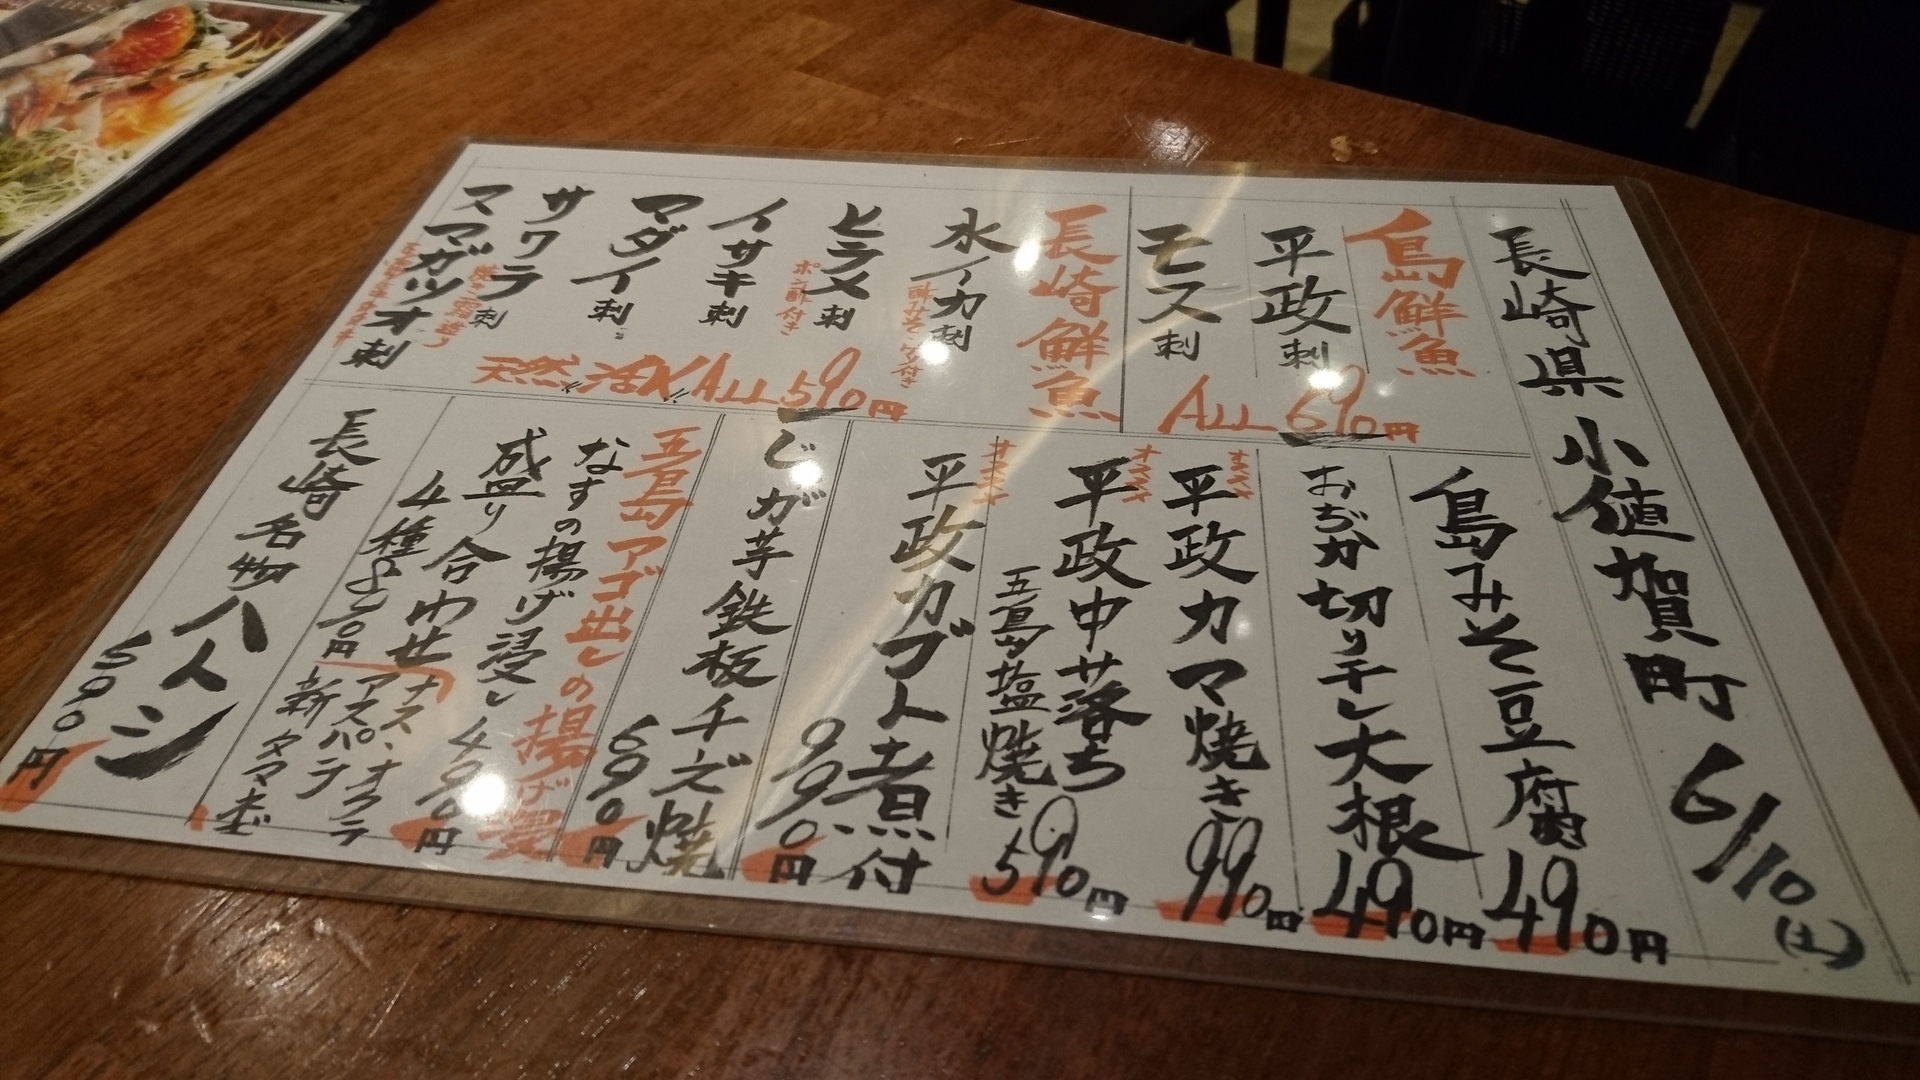 長崎県 小値賀町 6/10(土)
島鮮魚
平政刺
モス刺
ALL 690円
長崎鮮魚
水イカ刺
ヒラメ刺
ポン酢付き
イサキ刺
マダイ刺
サワラ刺
焼き霜造り
スマガツオ刺
天然 活〆 ALL 590円
島みそ豆腐 490円
おぢか切り干し大根 490円
オススメ
平政カマ焼き 990円
オススメ
平政中落ち
五島塩焼き 590円
オススメ
平政カブト煮付 990円
じゃが芋鉄板チーズ焼 690円
五島アゴ出しの揚げ浸し
なすの揚げ浸し 490円
盛り合わせ
4種 890円
ナス、オクラ
アスパラ
新タマネギ
長崎名物ハトシ
590円